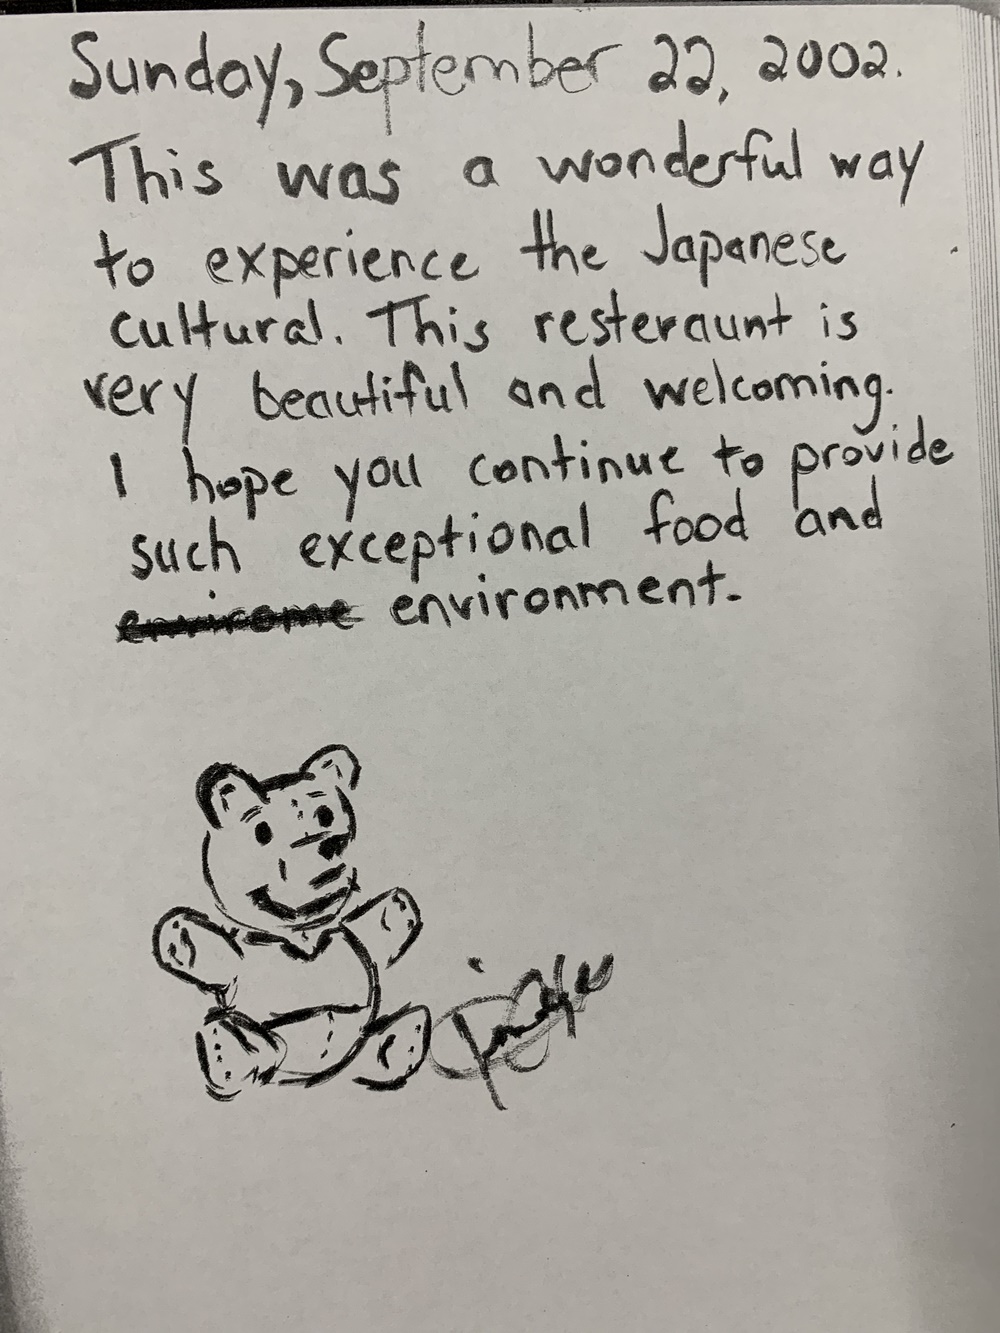 Sunday, September 22, 2002.
This was a wonderful way
to experience the Japanese
cultural. This resteraunt is
very beautiful and welcoming.
I hope you continue to provide
such exceptional food and
envirome environment.